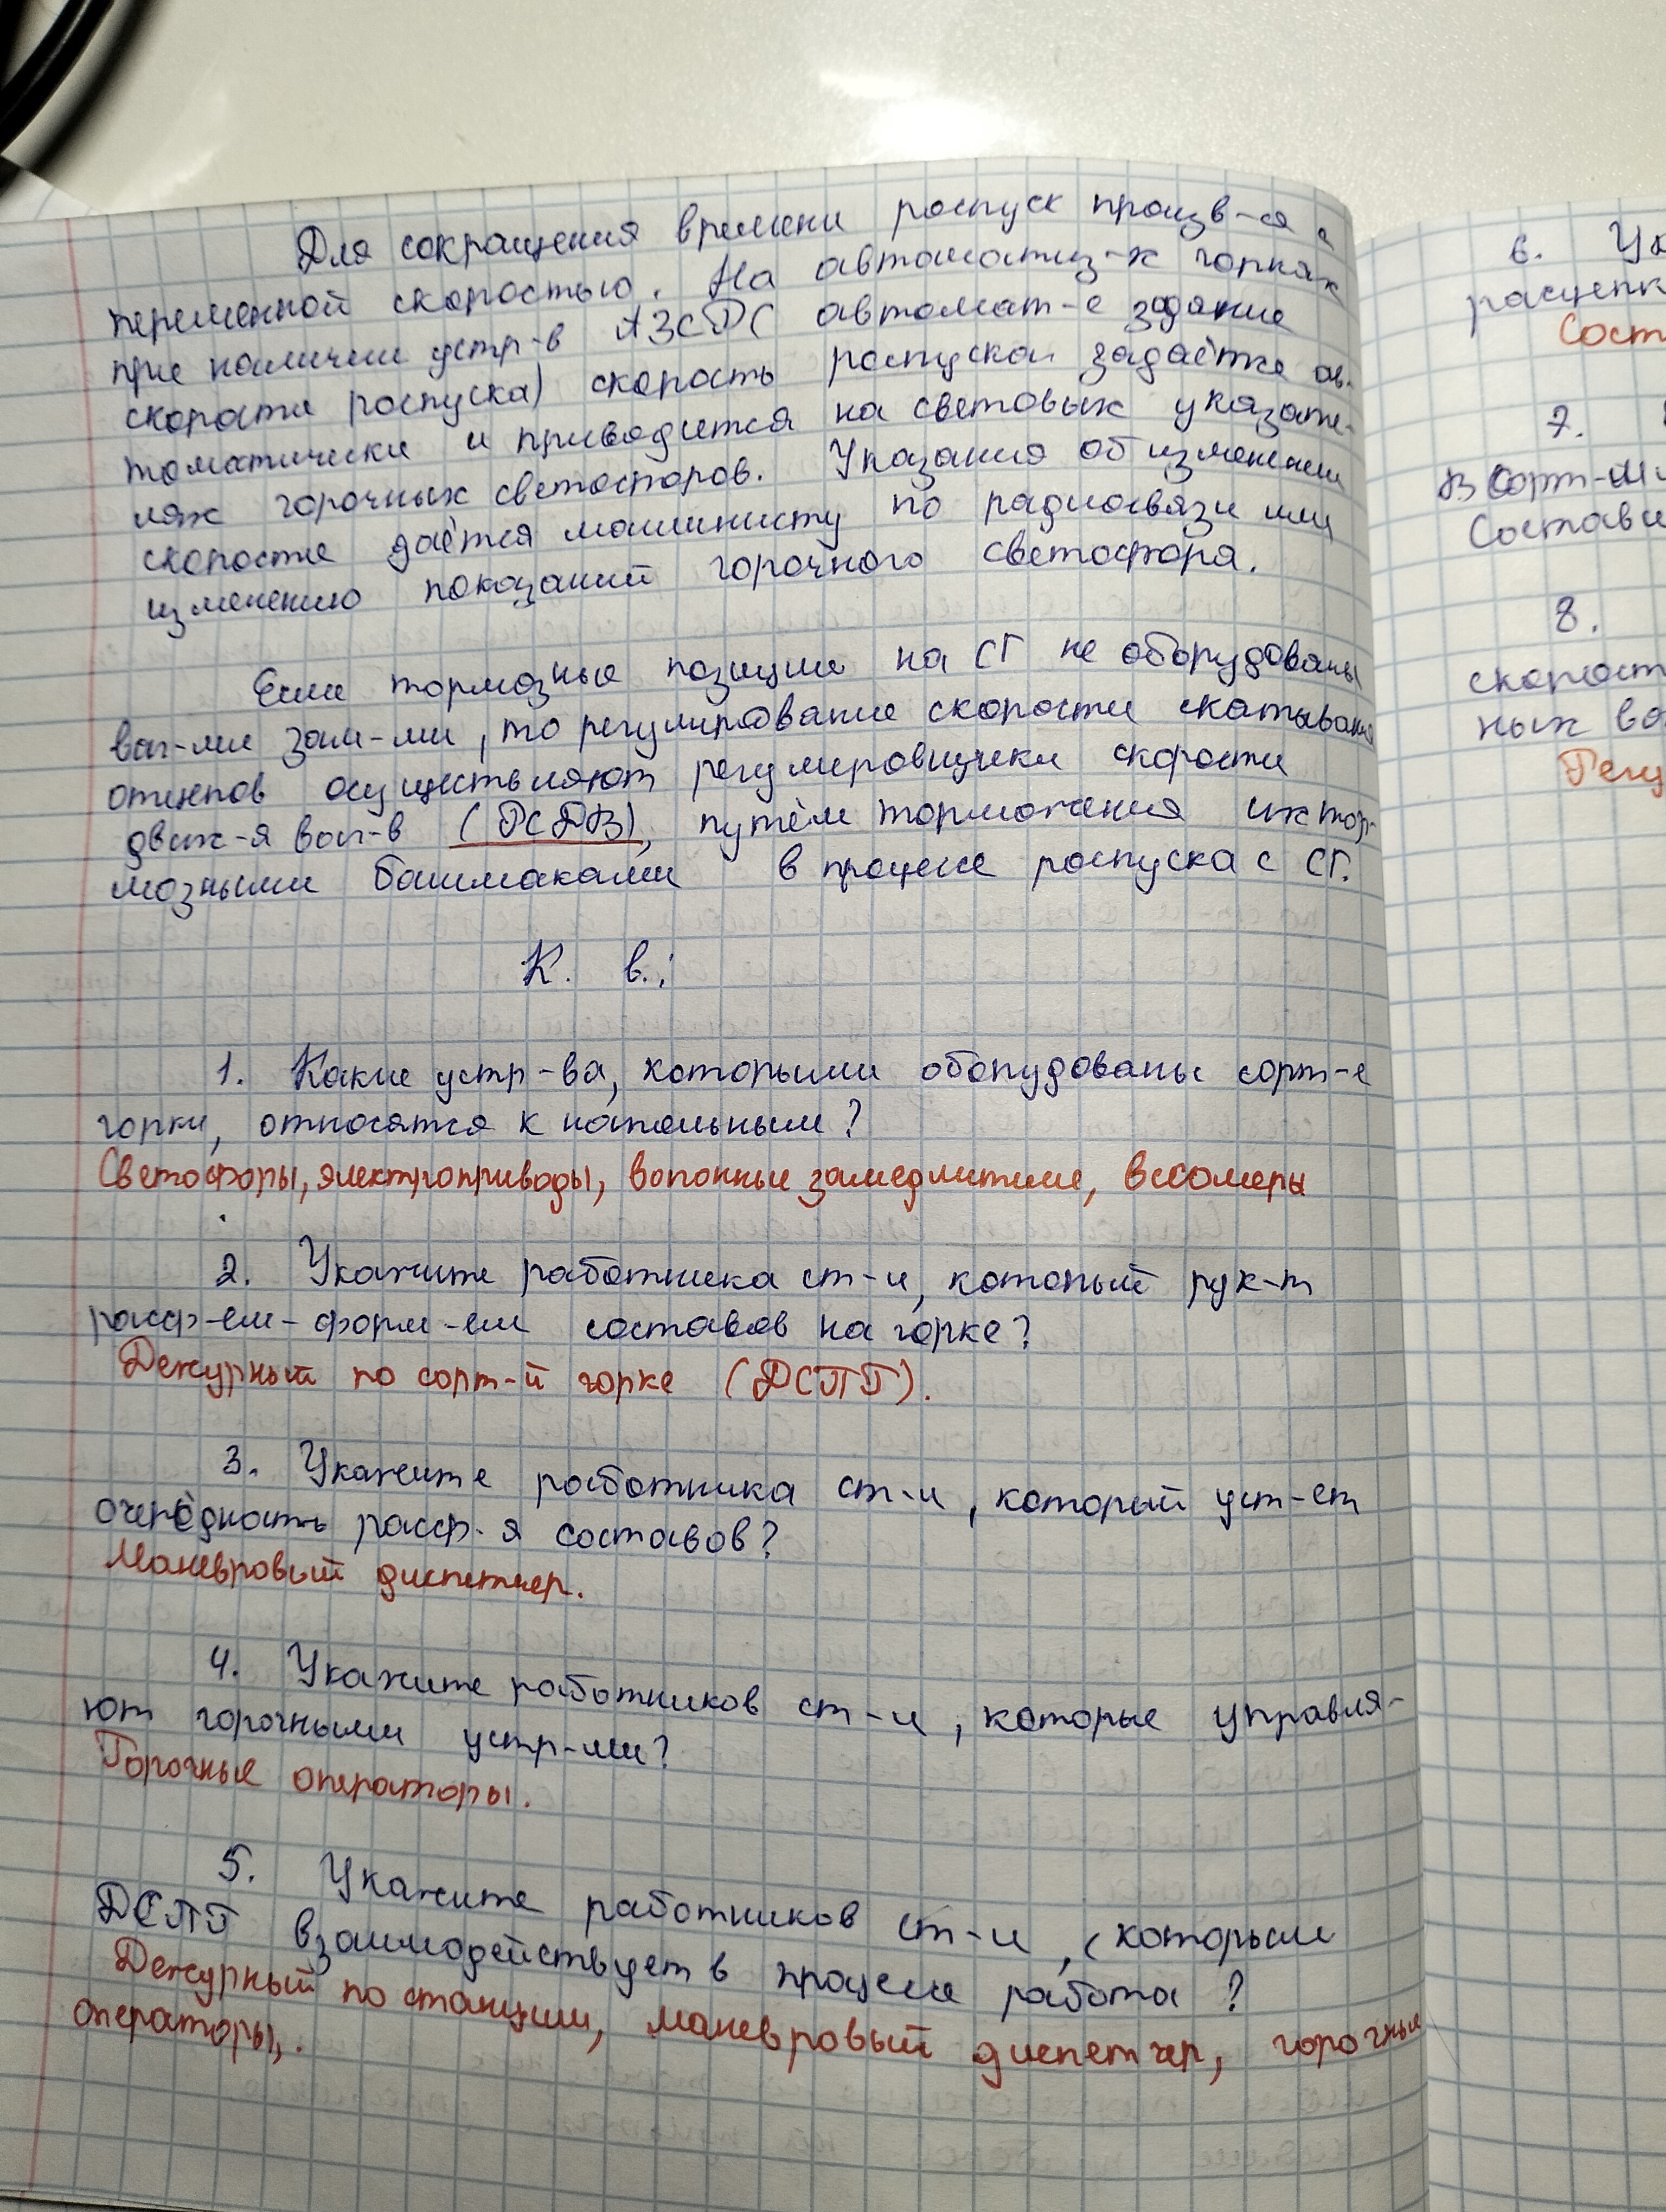 Для сокращения времени роспуск произв-ся с
переменной скоростью. На автоматиз-х горках
при наличии устр-в АЗСРС автомат-е задание
скорости роспуска) скорость роспуска задаётся ав-
томатически и приводится на световых указате-
лях горочных светофоров. Указания об изменении
скорости даётся машинисту по радиосвязи или
изменению показаний горочного светофора.
Если тормозные позиции на СГ не оборудованы
ваг-ми зам-ми, то регулирование скорости скатывания
отцепов осуществляют регулировщики скорости
движ-я ваг-в (РСДВ), путём торможения их тор-
мозными башмаками в процессе роспуска с СГ.
К. в.:
1. Какие устр-ва, которыми оборудованы сорт-е
горки, относятся к напольным?
Светофоры, электроприводы, вагонные замедлители, весомеры
2. Укажите работника ст-и, который рук-т
расф-ем-форм-ем составов на горке?
Дежурный по сорт-й горке (ДСПГ).
3. Укажите работника ст-и, который уст-ет
очерёдность расф-я составов?
Маневровый диспетчер.
4. Укажите работников ст-и, которые управля-
ют горочными устр-ми?
Горочные операторы.
5. Укажите работников ст-и, с которыми
ДСПГ взаимодействует в процессе работа?
Дежурный по станции, маневровый диспетчер, горочные
операторы,.
6. Ук
расцепк
Сост
7.
в сорт-
Состави
8.
скорост
ных ва
Регу